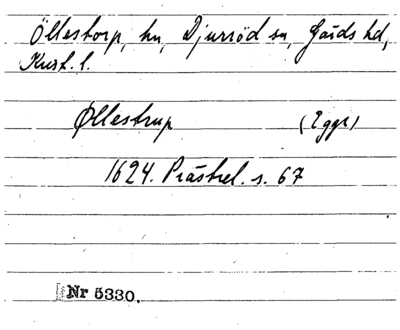 Öllestorp, hn, Djurröd sn, Gärds hd,
Krist. l.
Øllestrup (2 ggr)
1624. Prästrel. s. 67
Nr 5330.